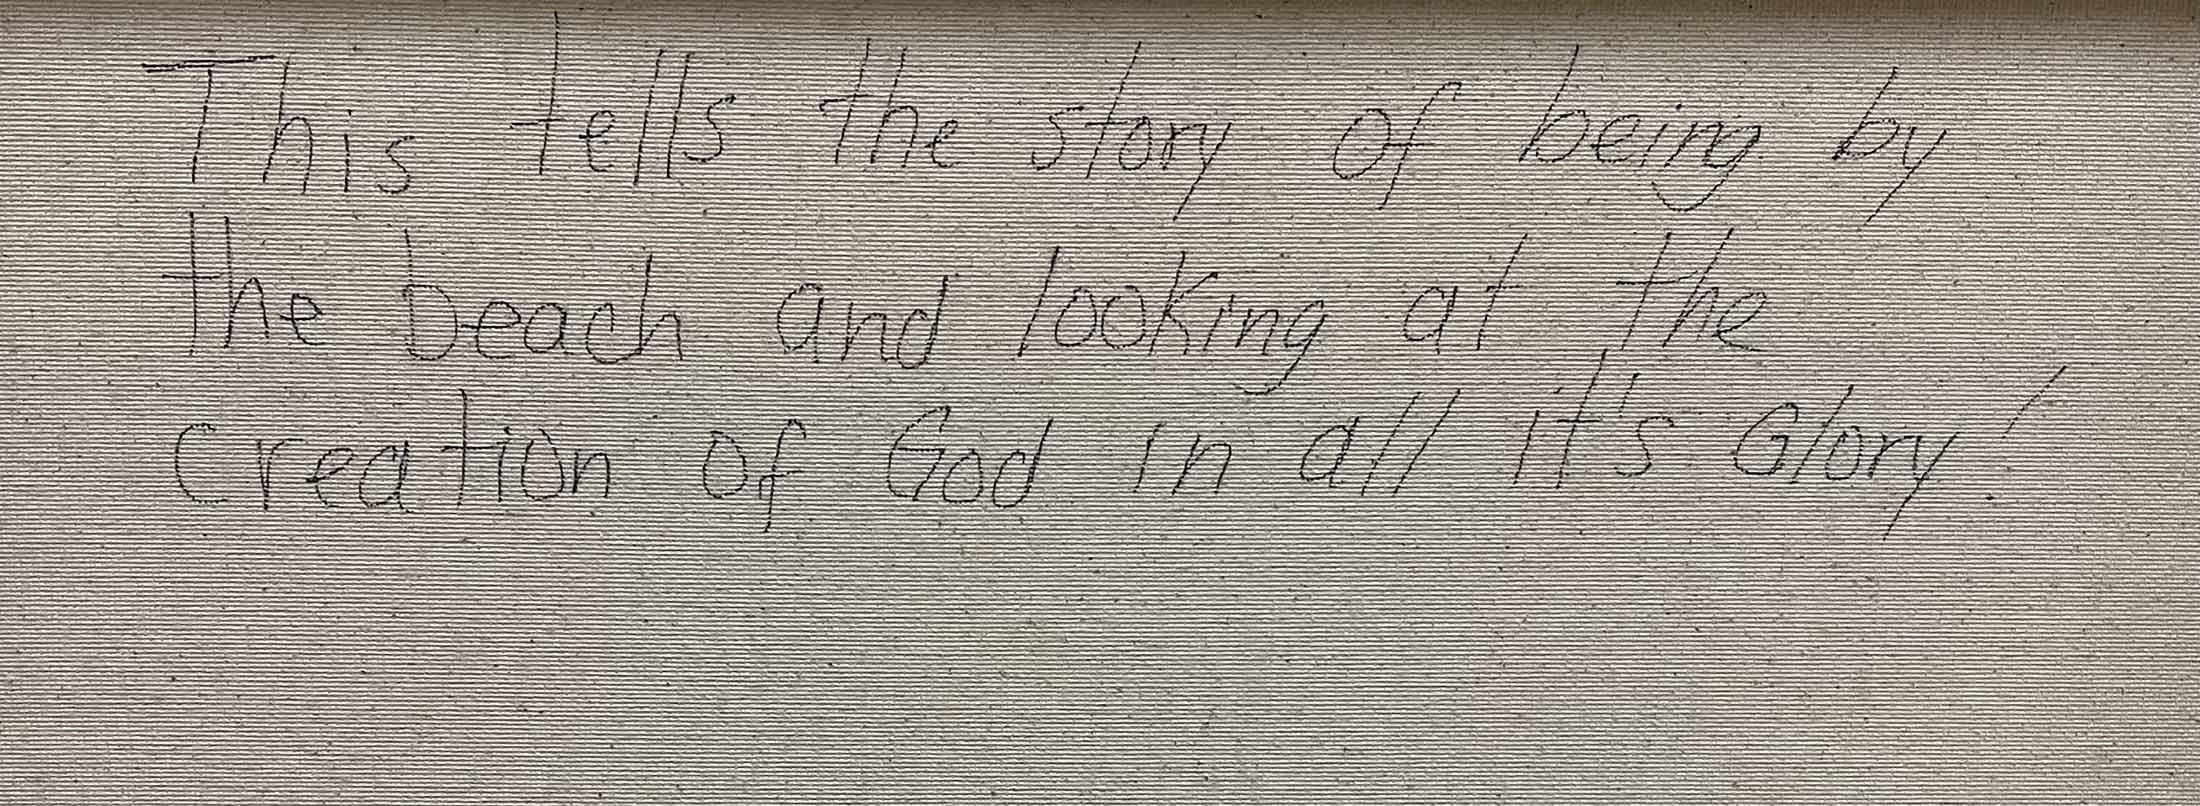 This tells the story of being by
the beach and looking at the
creation of God in all it's Glory!